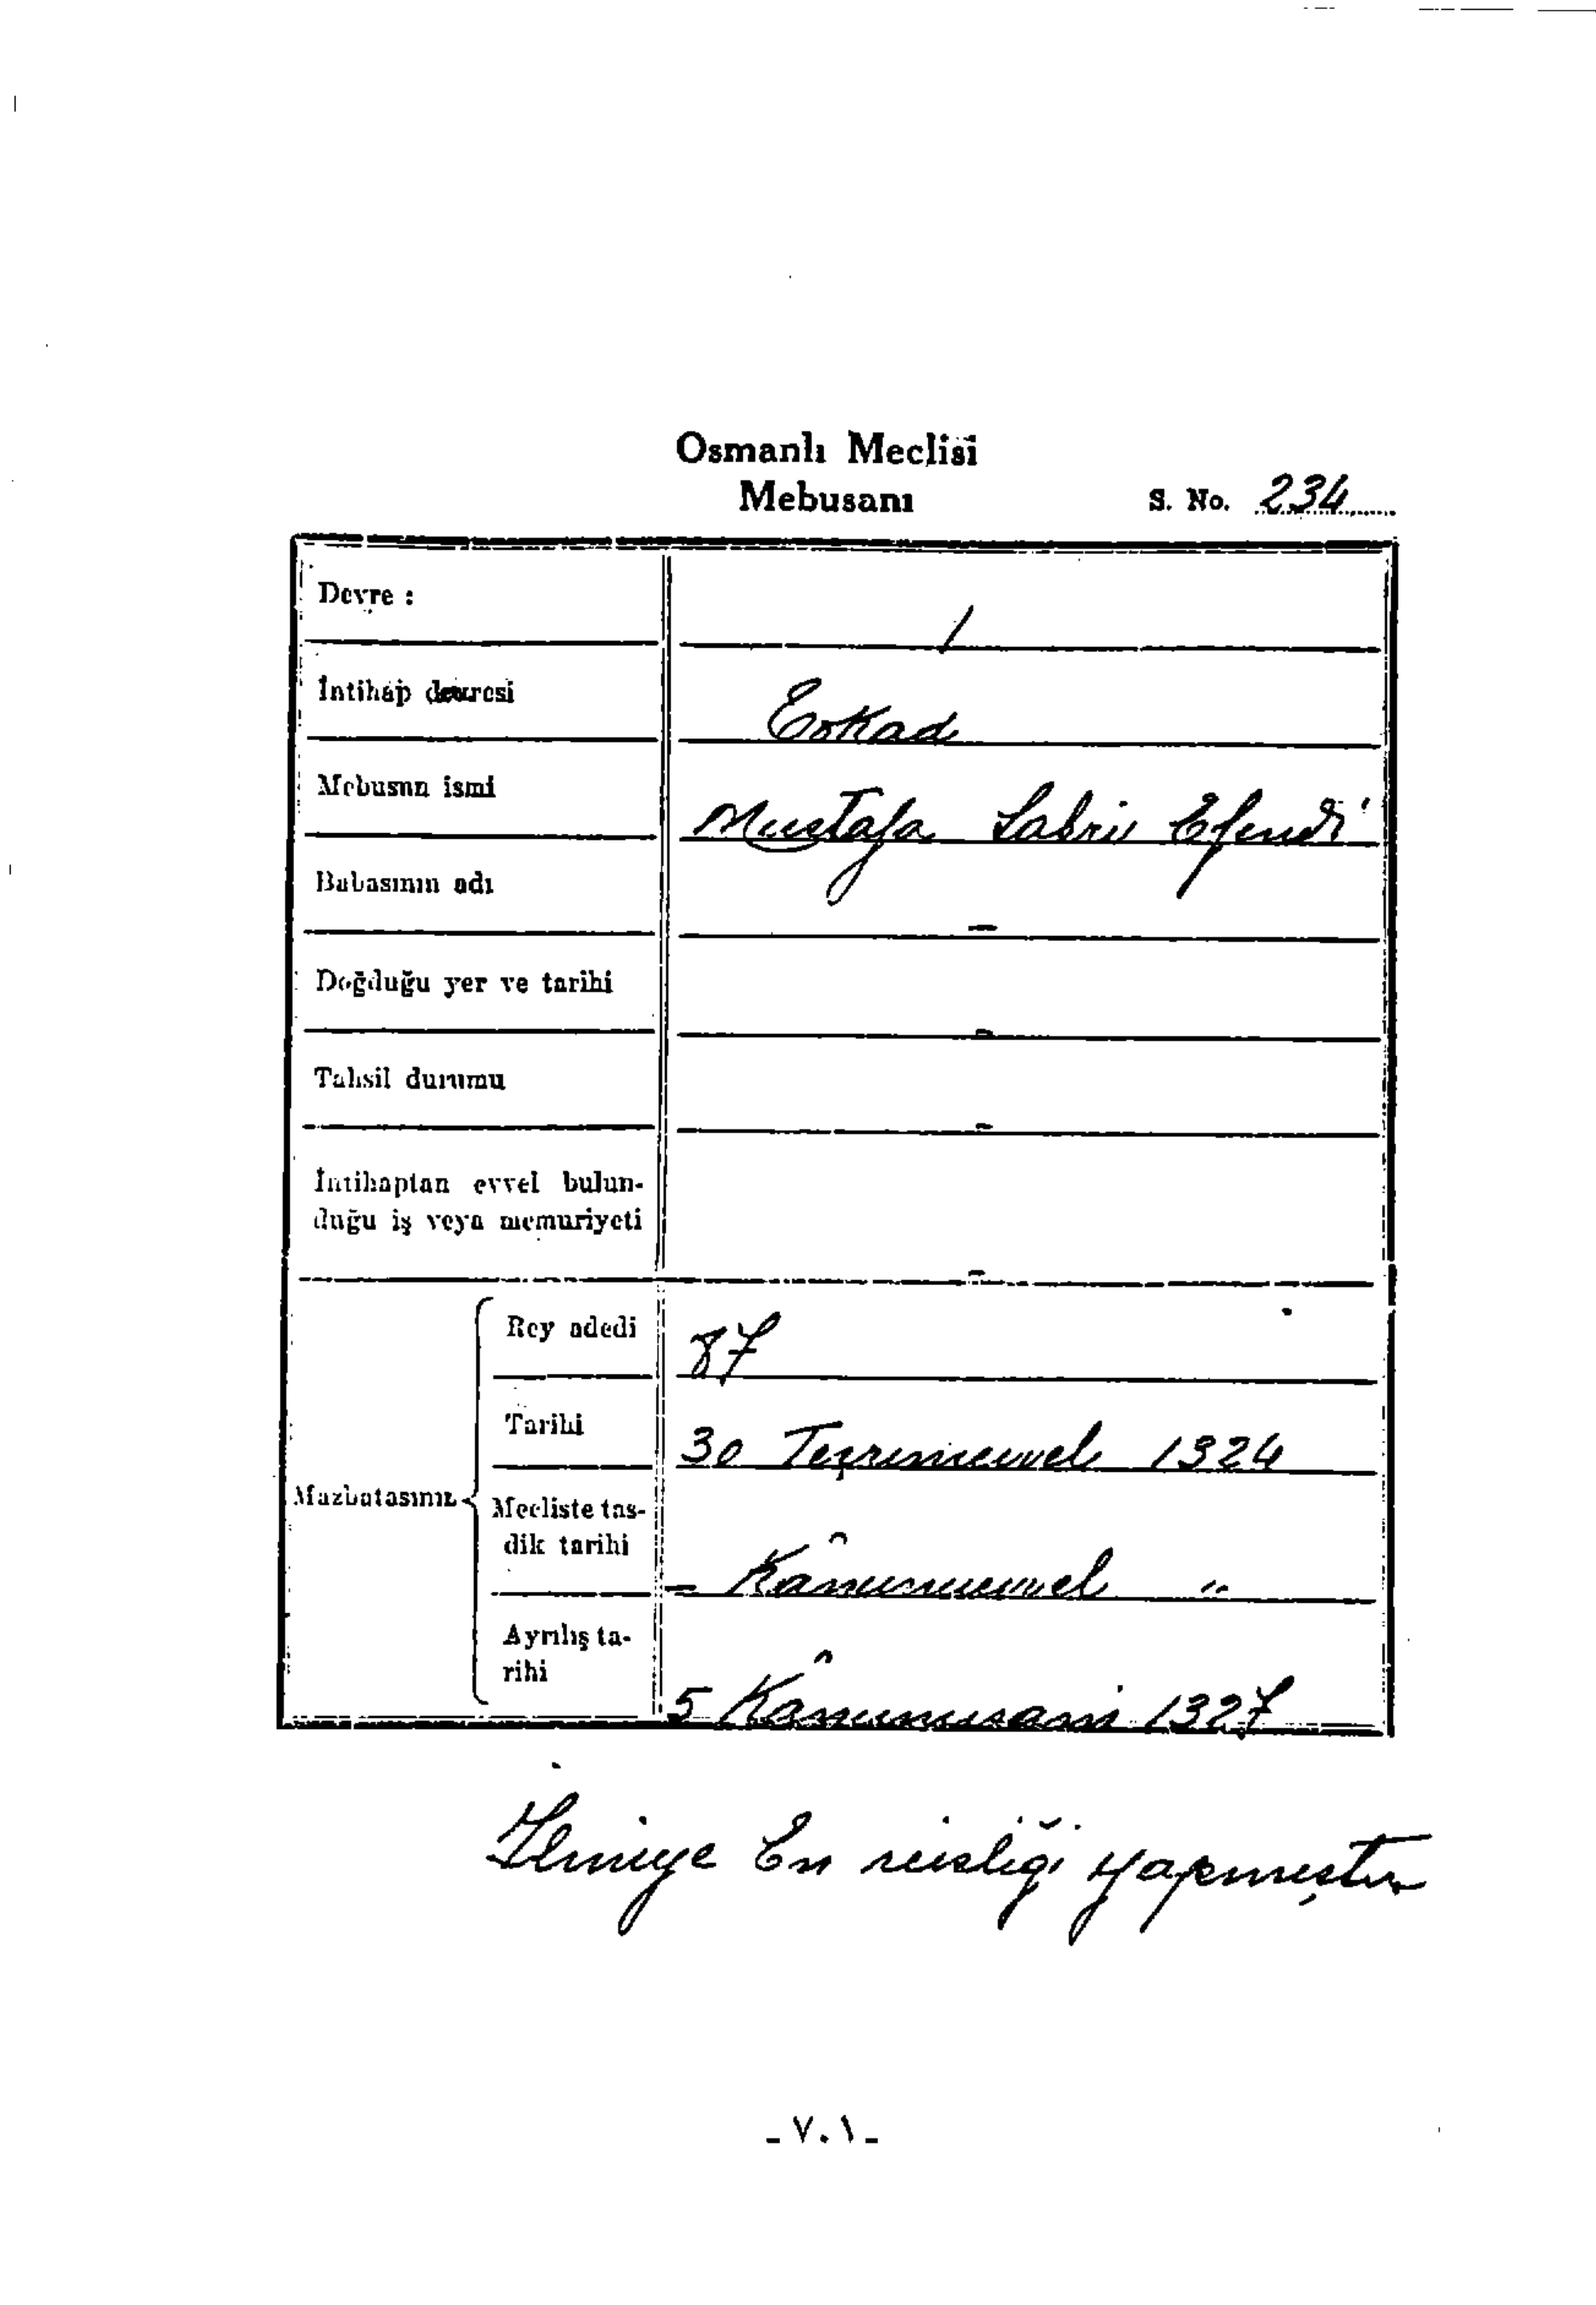 Osmanlı Meclisi
Mebusanı
S. No. 234
Devre : 1
İntihap devresi
Mebusun ismi Mustafa Sabri Efendi
Babasının adı —
Doğduğu yer ve tarihi -
Tahsil durumu -
İntihaptan evvel bulun-
duğu iş veya memuriyeti -
Mazbatasının
Rey adedi 87
Tarihi 30 Teşrinievvel 1324
Mecliste tas-
dik tarihi - Kânunuevvel "
Ayrılış ta-
rihi 5 Kânunusani 1327
İlmiye En reisliği yapmıştır
- ٧٠١ -